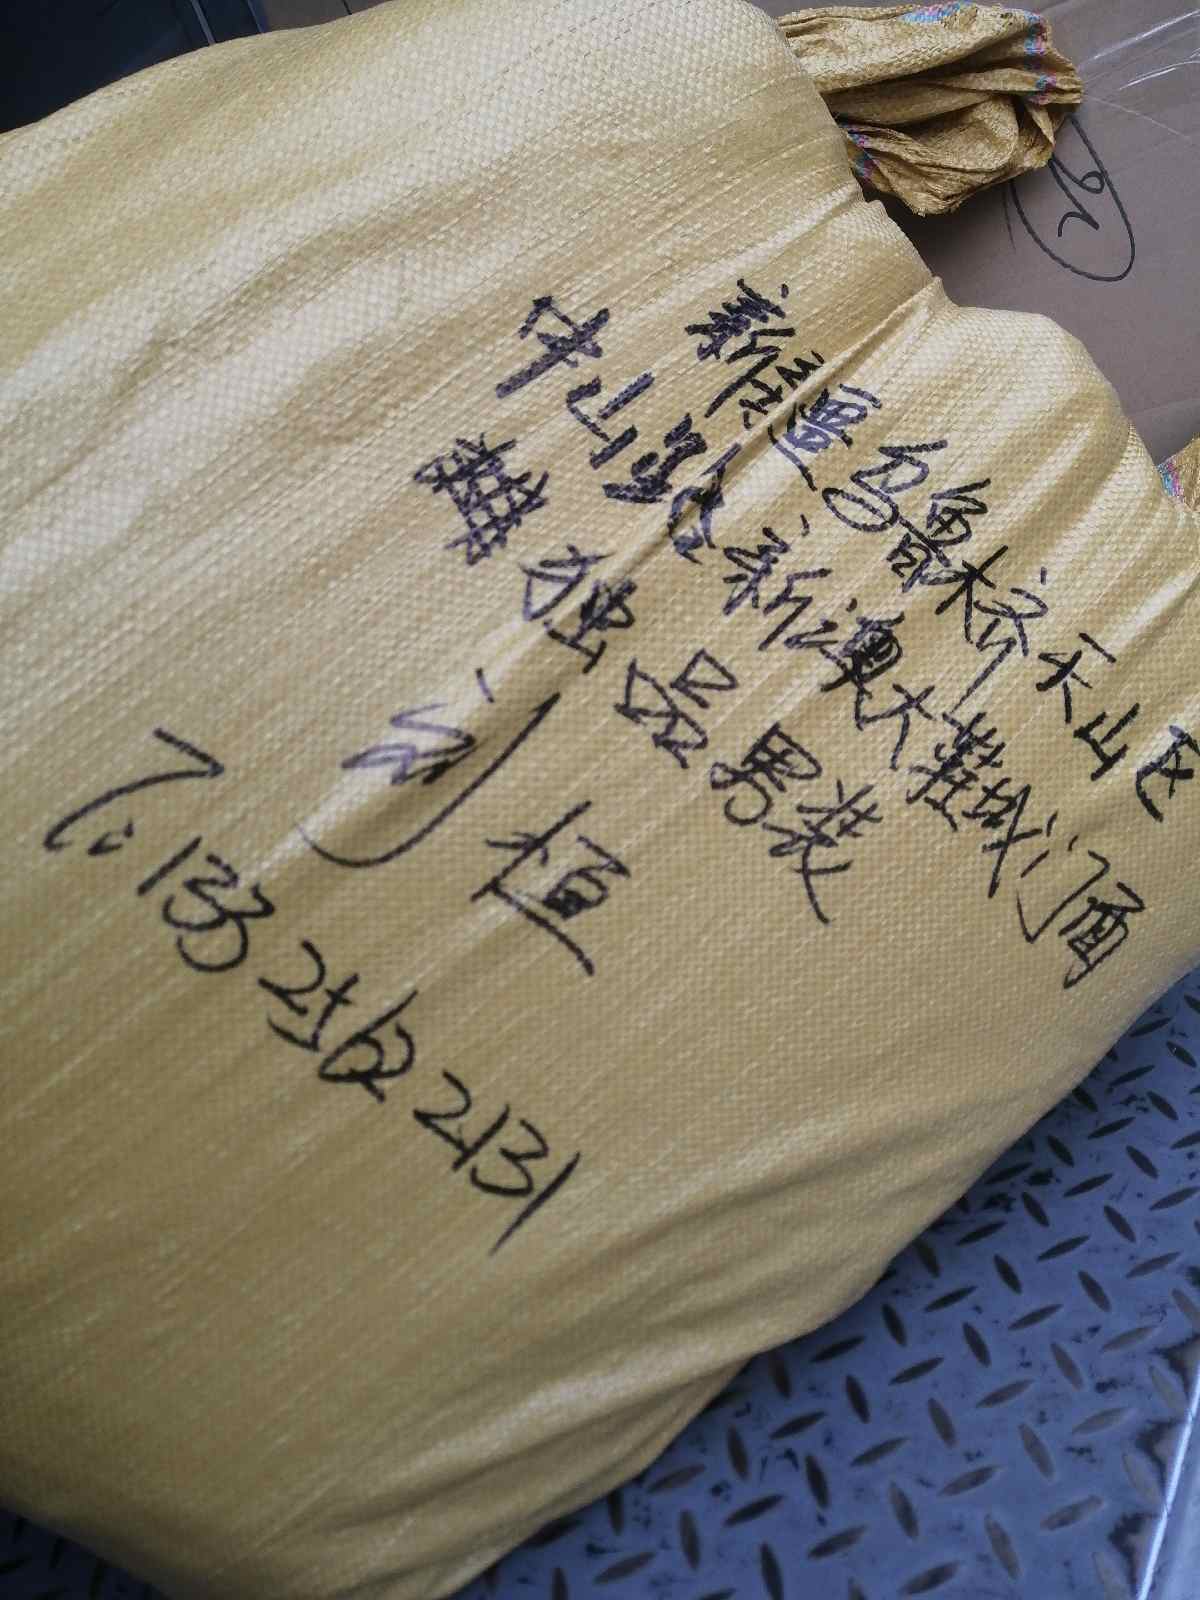 新疆乌鲁木齐天山区
中山路新澳大鞋城门面
独品男装
刘恒
T: 13325622131